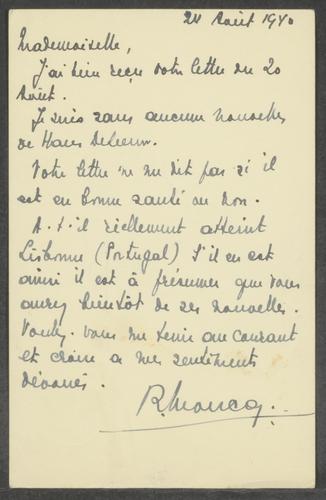 24 Août 1940
Mademoiselle,
J'ai bien reçu votre lettre du 20
Août.
Je suis sans aucune nouvelles
de Hans
Votre lettre ne me dit pas si il
est en bonne santé ou non.
A-t-il réellement atteint
Lisbonne (Portugal) s'il en est
ainsi il est à présumer que vous
aurez bientôt de ses nouvelles.
Voulez-vous me tenir au courant
et croire a mes sentiments
dévoués.